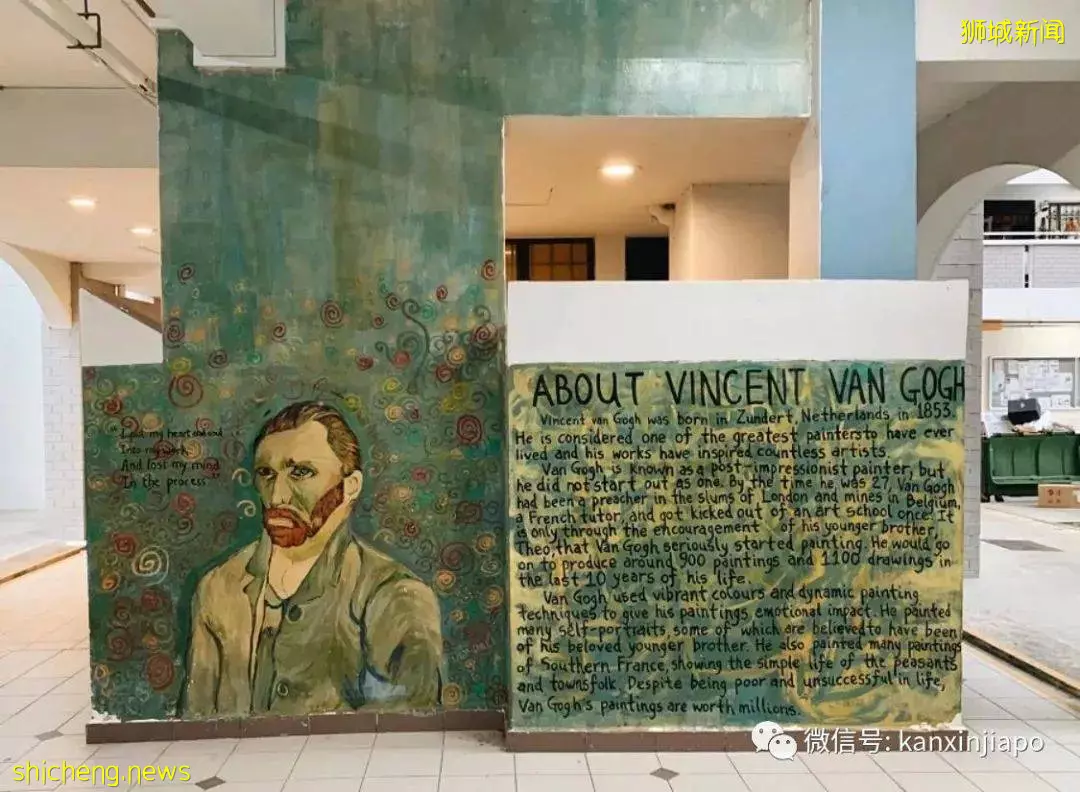 狮城新闻
ABOUT VINCENT VAN GOGH
Vincent van Gogh was born in Zundert, Netherlands in 1853.
He is considered one of the greatest painters to have ever
lived and his works have inspired countless artists.
Van Gogh is known as a post-impressionist painter, but
he did not start out as one. By the time he was 27, Van Gogh
had been a preacher in the slums of London and mines in Belgium,
a French tutor, and got kicked out of an art school once. It
is only through the encouragement of his younger brother,
Theo, that Van Gogh seriously started painting. He would go
on to produce around 900 paintings and 1100 drawings in
the last 10 years of his life.
Van Gogh used vibrant colours and dynamic painting
techniques to give his paintings emotional impact. He painted
many self-portraits, some of which are believed to have been
of his beloved younger brother. He also painted many paintings
of Southern France, showing the simple life of the peasants
and townsfolk. Despite being poor and unsuccessful in life,
Van Gogh's paintings are worth millions.
"I put my heart and soul
Into my work,
And lost my mind
In the process"
微信号: kanxinjiapo
shicheng.news